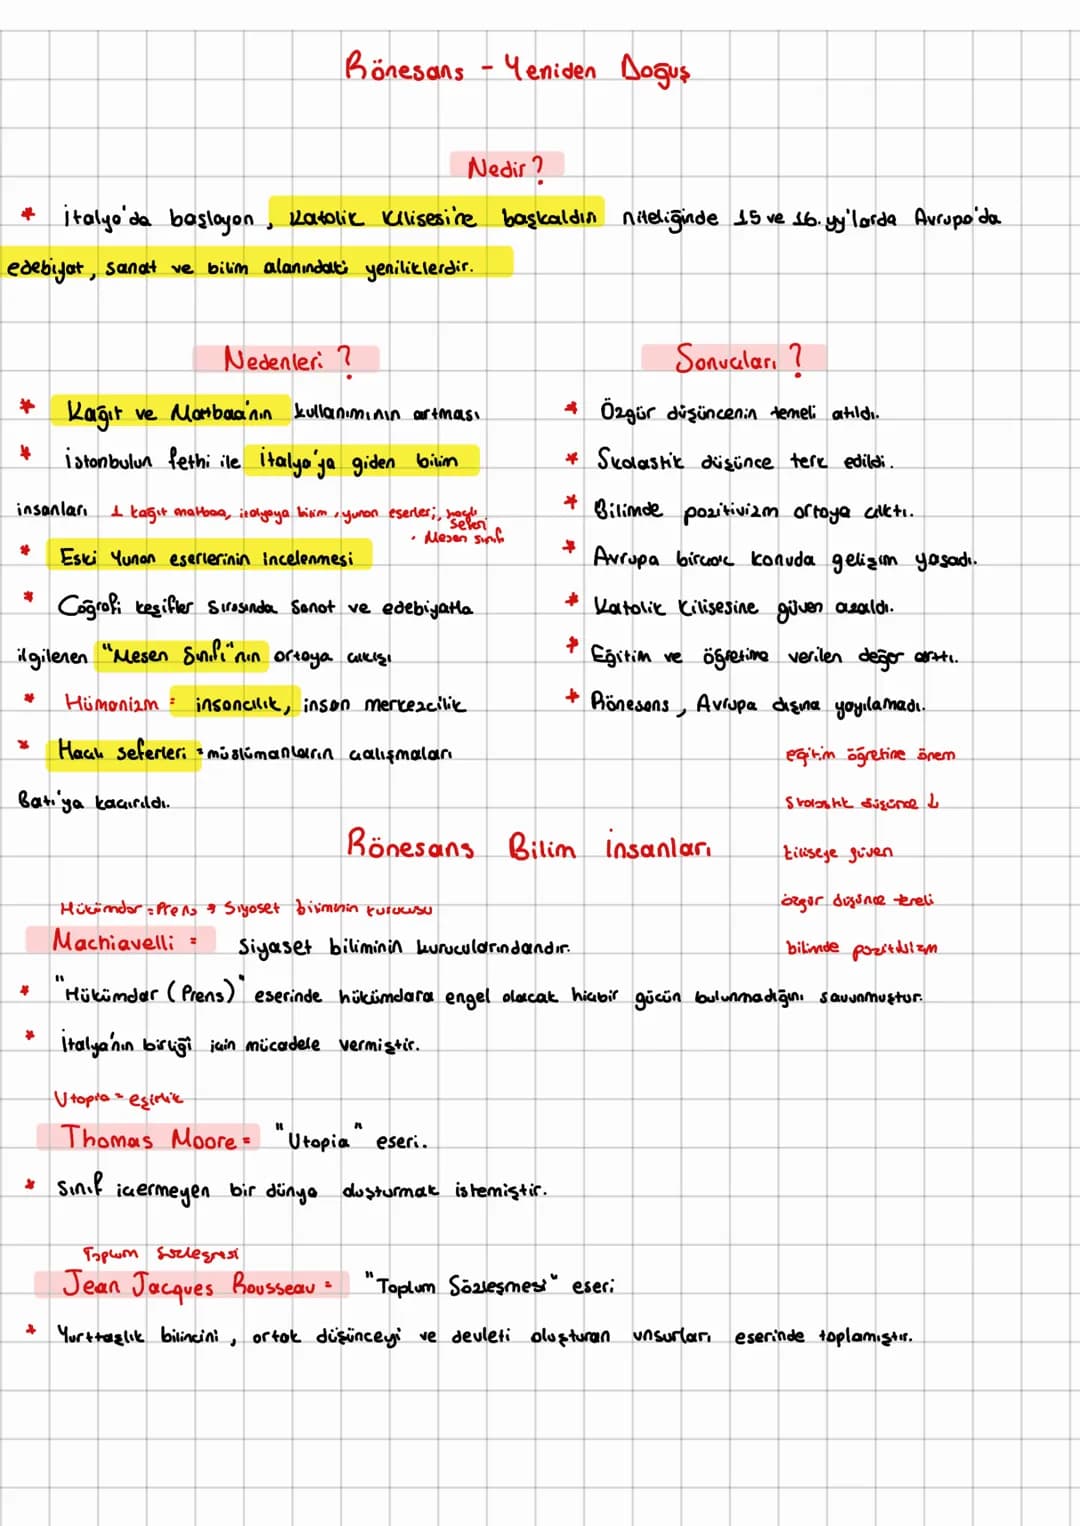 Rönesans - Yeniden Doğuş
Nedir?
* İtalya'da başlayan, Katolik Kilisesi'ne başkaldırı niteliğinde 15 ve 16. yy'larda Avrupa'da
edebiyat, sanat ve bilim alanındaki yeniliklerdir.
Nedenleri ?
* Kağıt ve Matbaa'nın kullanımının artması
* İstanbulun fethi ile İtalya'ya giden bilim
insanları 1 kağıt matbaa, italyaya bilim, yunan eserleri, haçlı
seferi
• Mesen sınıfı
* Eski Yunan eserlerinin incelenmesi
* Coğrafi keşifler sırasında sanat ve edebiyatla
ilgilenen "Mesen Sınıfı"nın ortaya çıkışı
* Hümanizm = insancılık, insan merkezcilik
* Haçlı seferleri = müslümanların çalışmaları
Batı'ya kaçırıldı.
Sonuçları ?
* Özgür düşüncenin temeli atıldı.
* Skolastik düşünce terk edildi.
* Bilimde pozitivizm ortaya çıktı.
* Avrupa birçok konuda gelişim yaşadı.
* Katolik Kilisesine güven azaldı.
* Eğitim ve öğretime verilen değer arttı.
* Rönesans, Avrupa dışına yayılamadı.
eğitim öğretime önem
Skolastik düşünce ↓
kiliseye güven
özgür düşünce temeli
bilimde pozitivizm
Rönesans Bilim İnsanları
Hükümdar = Prens → Siyaset biliminin kurucusu
Machiavelli = Siyaset biliminin kurucularındandır.
* "Hükümdar (Prens)" eserinde hükümdara engel olacak hiçbir gücün bulunmadığını savunmuştur.
* İtalya'nın birliği için mücadele vermiştir.
Utopia = eşitlik
Thomas Moore = "Utopia" eseri.
* Sınıf içermeyen bir dünya oluşturmak istemiştir.
Toplum Sözleşmesi
Jean Jacques Rousseau = "Toplum Sözleşmesi" eseri
* Yurttaşlık bilincini, ortak düşünceyi ve devleti oluşturan unsurları eserinde toplamıştır.